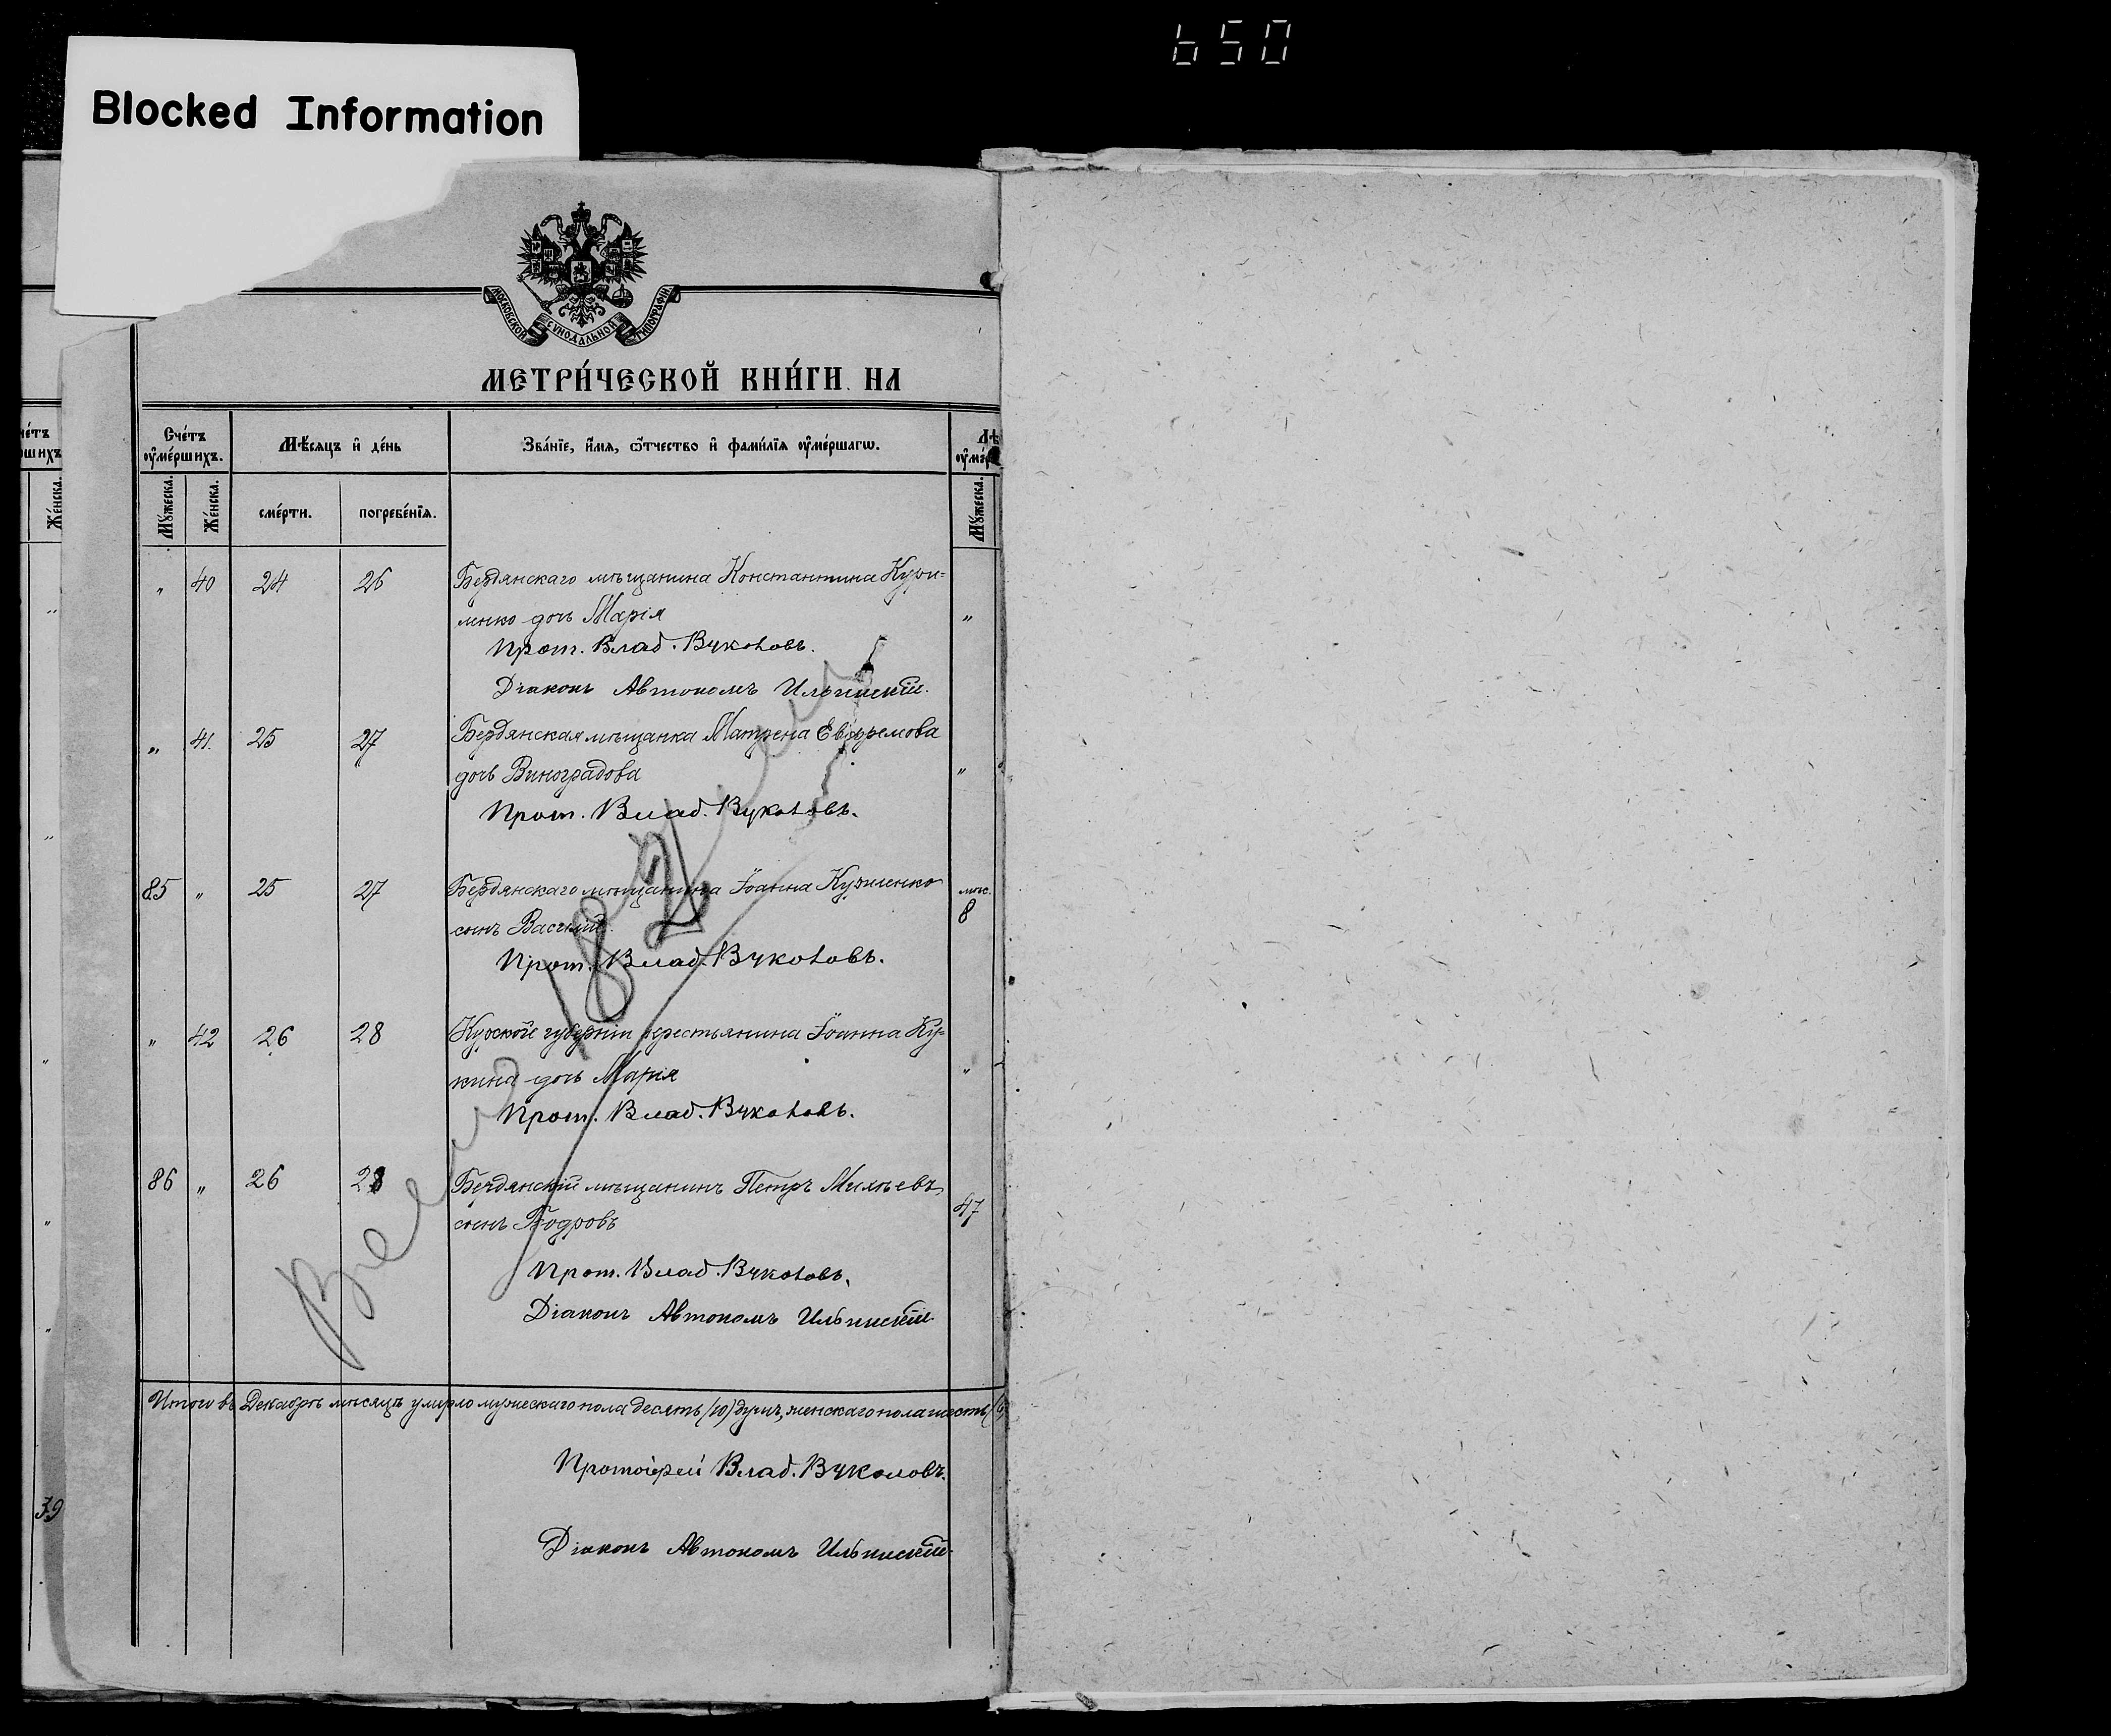 650
Blocked Information
МОСКОВСКОЙ СѴНОДАЛЬНОЙ ТИПОГРАФІИ
МЕТРИ́ЧЕСКОЙ КНИ́ГИ НА
Сче́тъ оу҆ме́ршихъ.
Мѣ́сяцъ и҆ де́нь
Зва́нїе, и҆́мѧ, ѻ҆́тчество и҆ фами́лїѧ оу҆ме́ршагѡ.
Му́жеска.
Же́нска.
сме́рти.
погребе́нїѧ.
Му́жеска.
Же́нска.
" 40 24 26 Бердянскаго мѣщанина Константина
дочь Марія "
Прот. Влад. Вуколовъ.
Діаконъ Автономъ Ильинскій.
" 41. 25 27 Бердянская мѣщанка Матрена Евфремова
дочь Виноградова "
Прот. Влад. Вуколовъ.
85 " 25 27 Бердянскаго мѣщанина Іоанна мѣс.
сынъ Василій 8
Прот. Влад. Вуколовъ.
" 42 26 28 Курской губерніи крестьянина Іоанна Ку-
кина дочь Марія "
Прот. Влад. Вуколовъ.
86 " 26 28 Бердянскій мѣщанинъ Петръ
сынъ Бодровъ 47
Прот. Влад. Вуколовъ.
Діаконъ Автономъ Ильинскій.
Итого въ Декабрѣ мѣсяцѣ умерло мужескаго пола десять (10) душъ, женскаго пола шесть (6
Протоіерей Влад. Вуколовъ.
Діаконъ Автономъ Ильинскій.
39
182